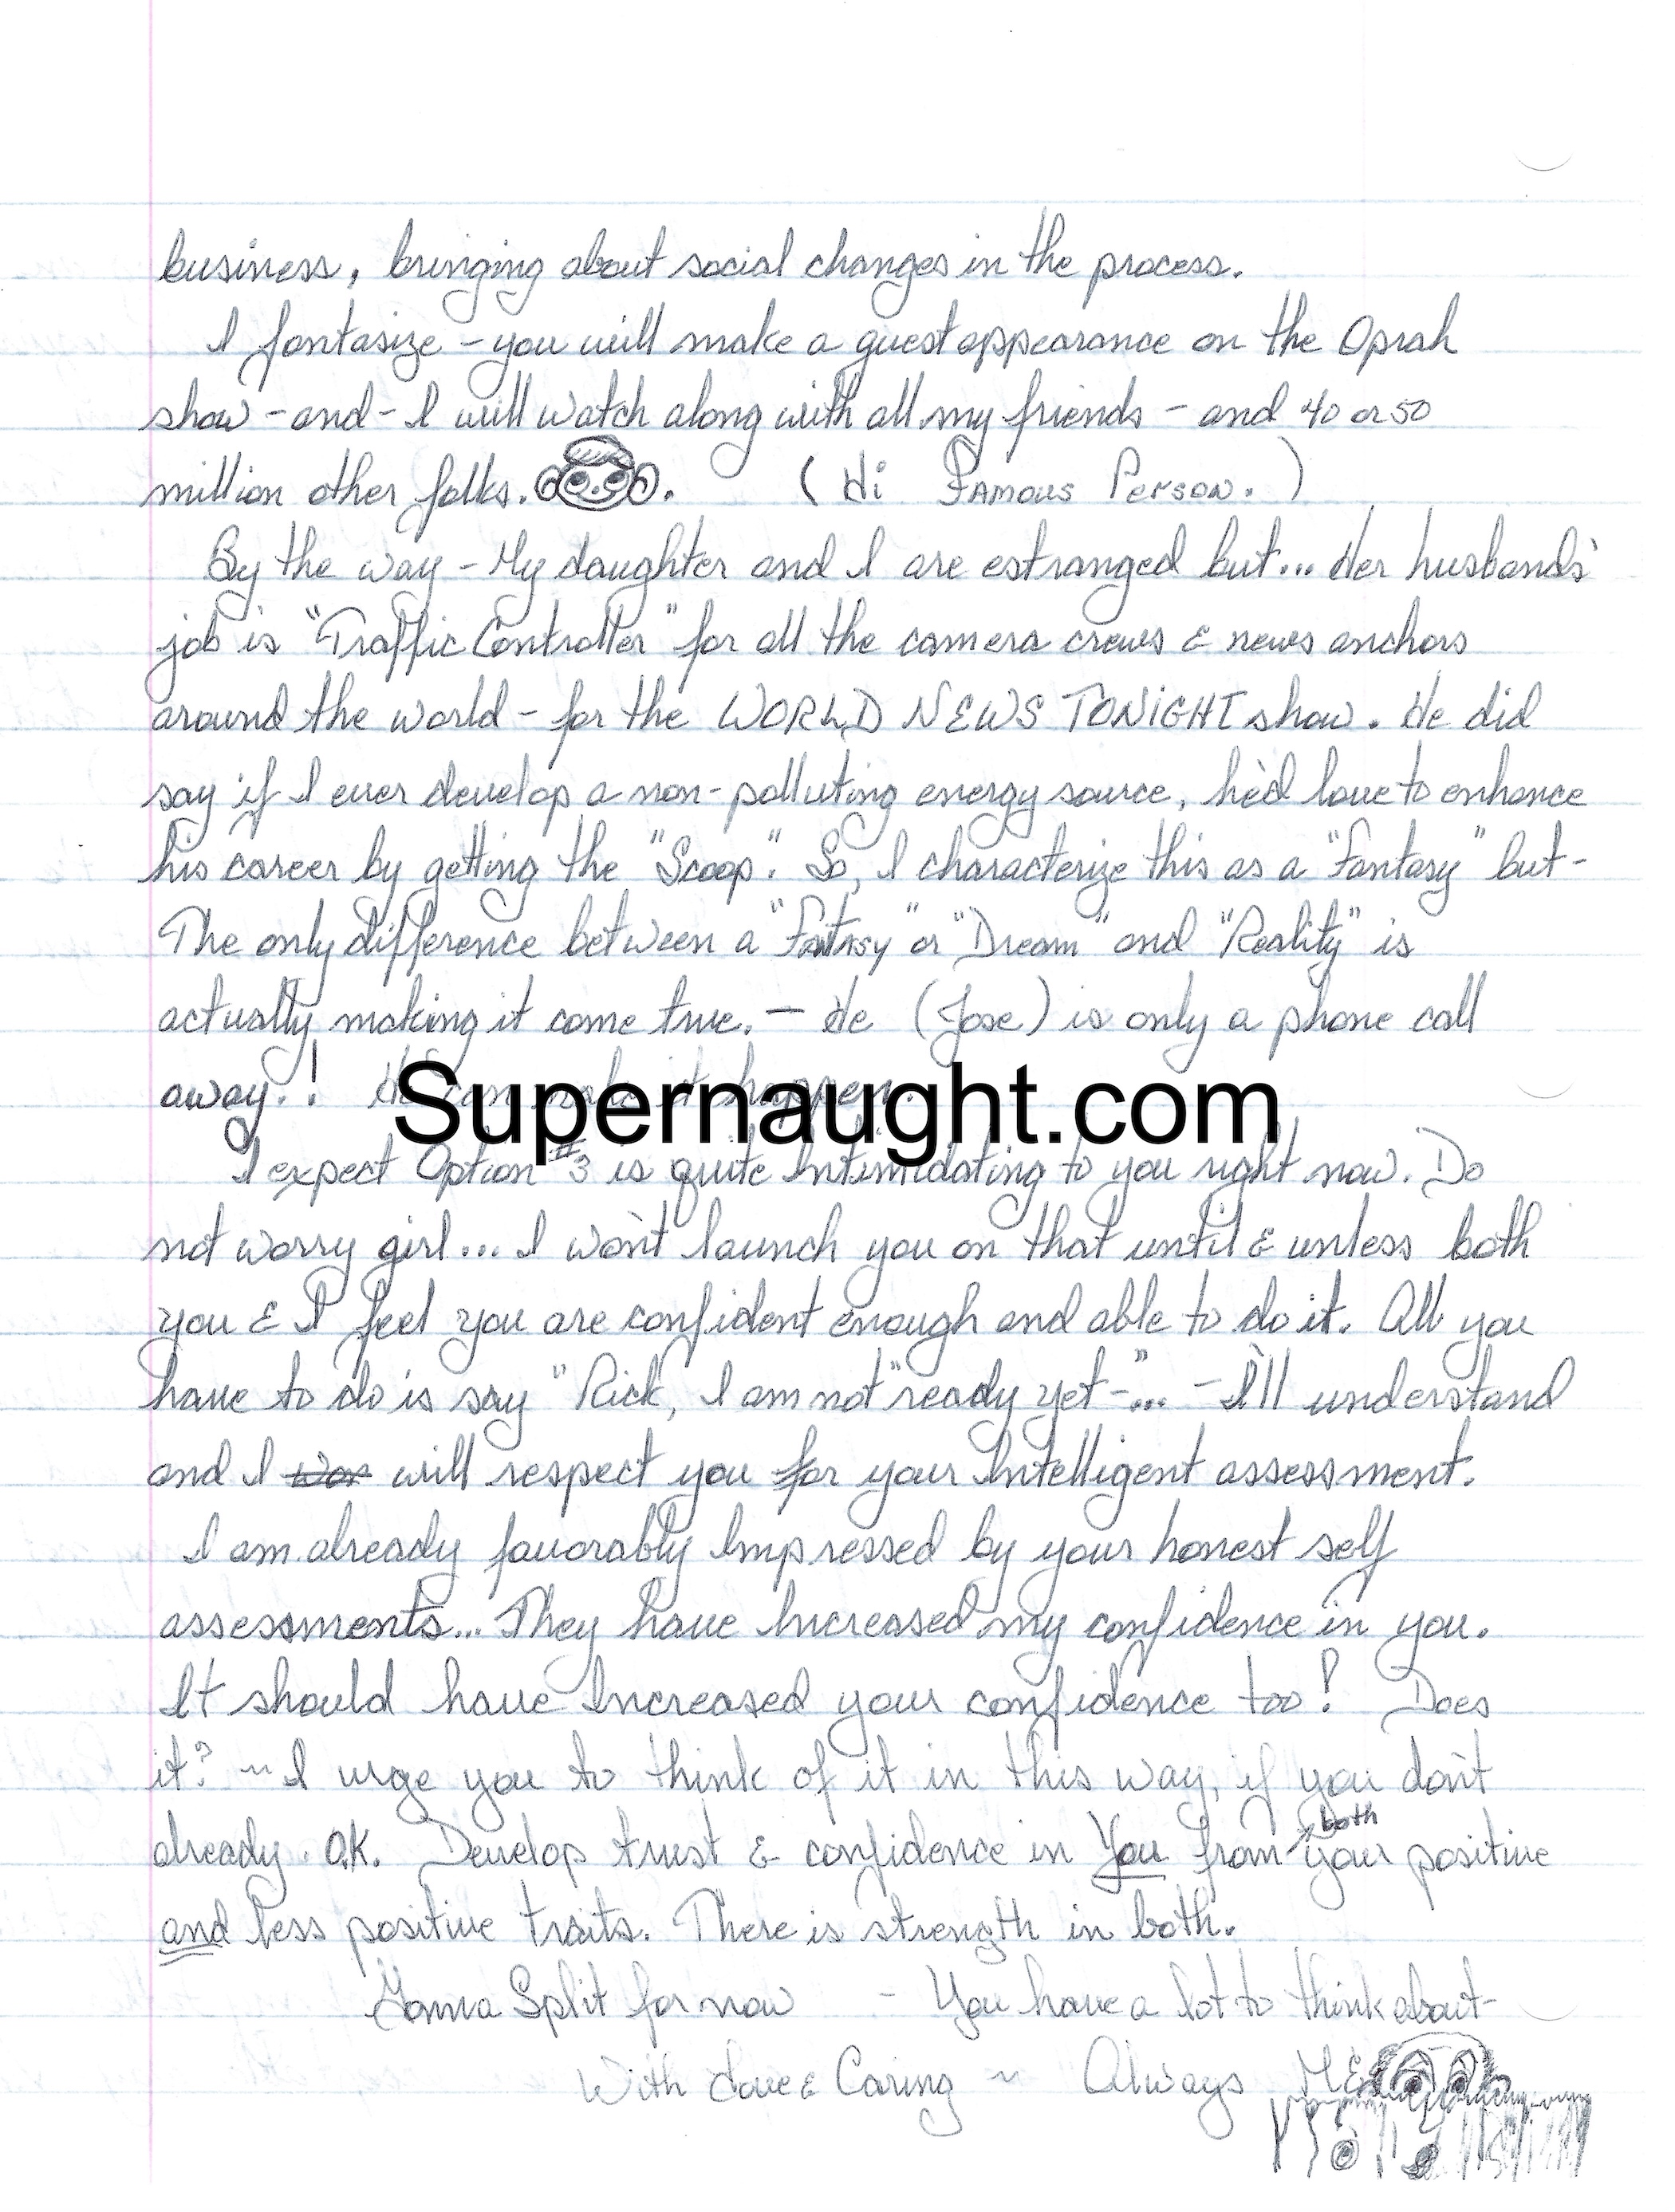 business, bringing about social changes in the process.
I fantasize - you will make a guest appearance on the Oprah
show - and - I will watch along with all my friends - and 40 or 50
million other folks. . (Hi Famous Person.)
By the way - My daughter and I are estranged but... Her husbands'
job is "Traffic Controller" for all the camera crews & news anchors
around the world - for the WORLD NEWS TONIGHT show. He did
say if I ever develop a non-polluting energy source, he'd love to enhance
his career by getting the "Scoop". So, I characterize this as a "Fantasy" but -
The only difference between a "Fantasy" or "Dream" and "Reality" is
actually making it come true. — He (Jose) is only a phone call
away.! He can make it happen.
Supernaught.com
I expect Option #3 is quite Intimidating to you right now. Do
not worry girl... I won't launch you on that until & unless both
you & I feel you are confident enough and able to do it. All you
have to do is say "Rick, I am not "ready yet -"... - I'll understand
and I will respect you for your Intelligent assessment.
I am already favorably Impressed by your honest self
assessments... They have Increased my confidence in you.
It should have Increased your confidence too! Does
it? ~ I urge you to think of it in this way, if you don't
already. O.K. Develop trust & confidence in You from both your positive
and less positive traits. There is strength in both.
Gonna Split for now - You have a lot to think about -
With Love & Caring ~ Always ME